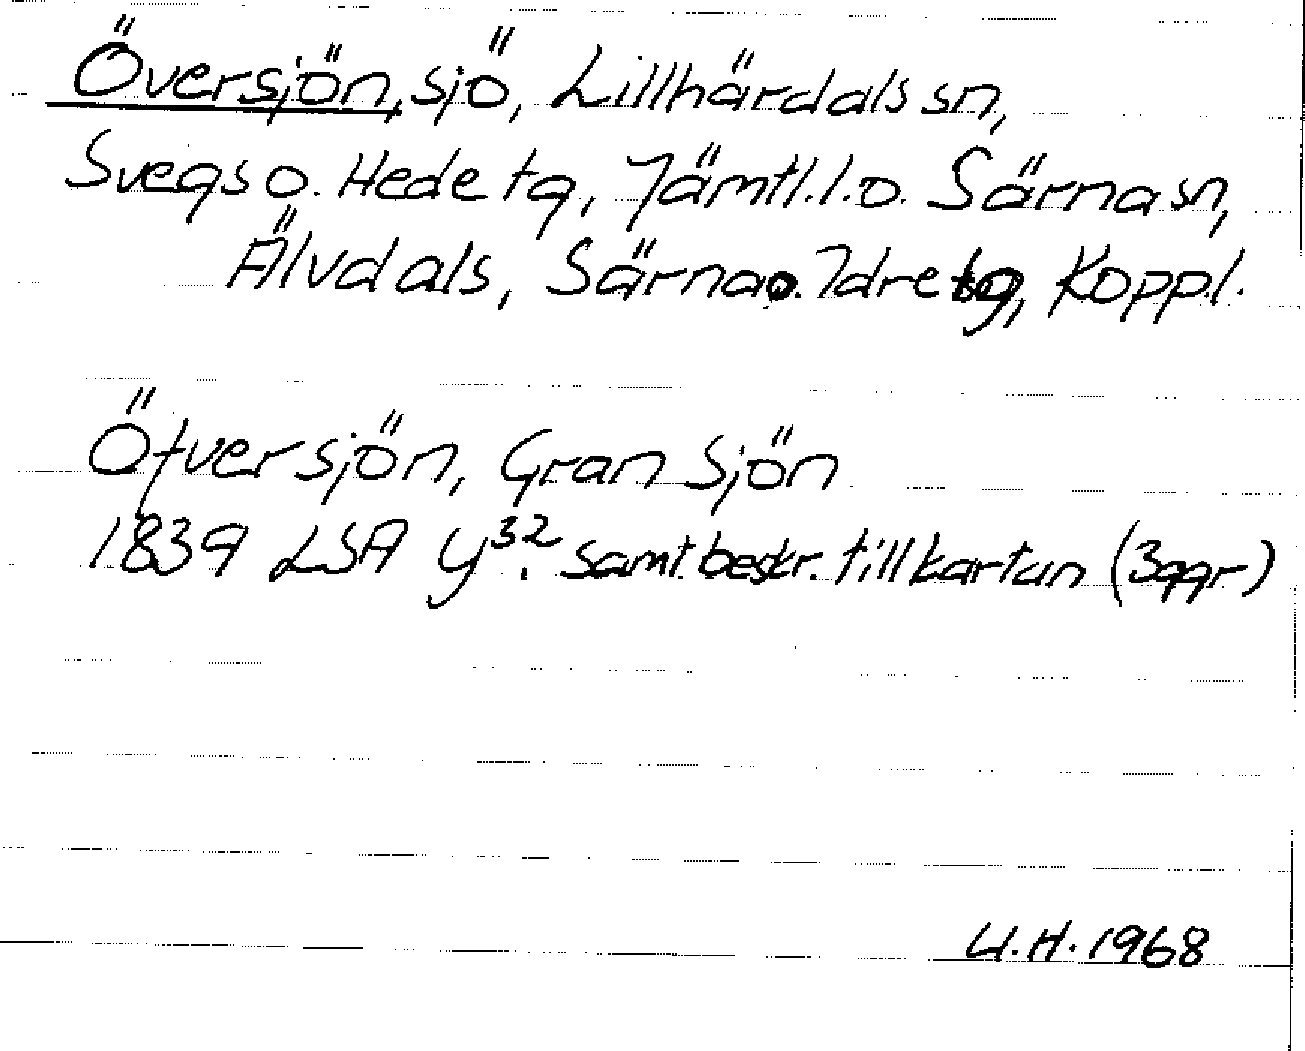 Översjön, sjö, Lillhärdals sn,
Svegs o. Hede tg, Jämtl.l.o. Särna sn,
Älvdals, Särna o. Idre tg, Koppl.
Öfversjön, Gran Sjön
1839 LSA y³². samt beskr. till kartan (3ggr)
U.H. 1968